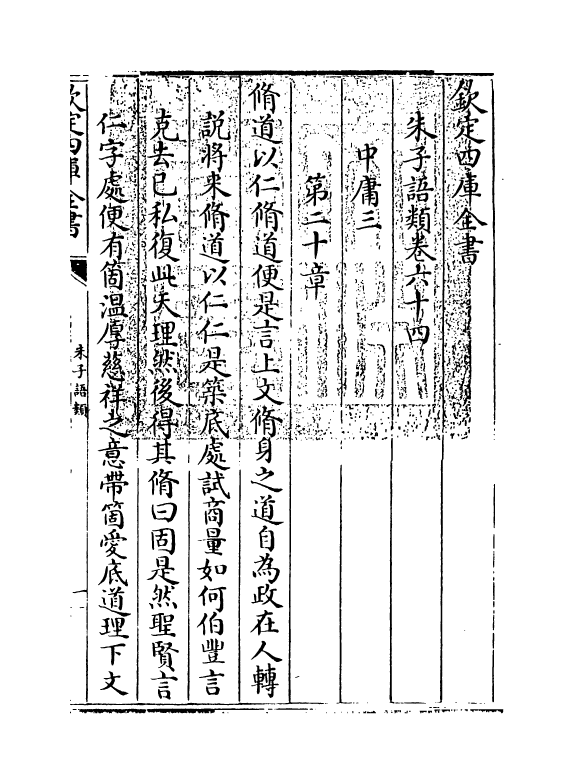 欽定四庫全書
朱子語類卷六十四
中庸三
第二十章
脩道以仁脩道便是言上文脩身之道自為政在人轉
說將来脩道以仁仁是築底處試商量如何伯豐言
克去己私復此天理然後得其脩曰固是然聖賢言
仁字處便有箇溫厚慈祥之意帶箇愛底道理下文
欽定四庫全書
朱子語類
一